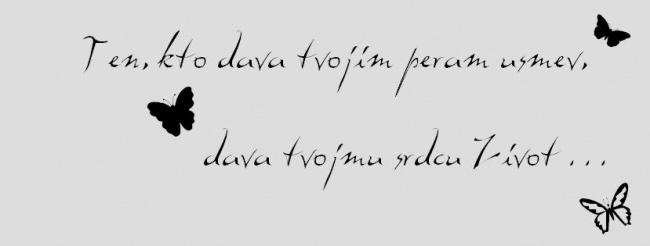 Ten, kto dava tvojim peram usmev,
dava tvojmu srdcu Zivot ...